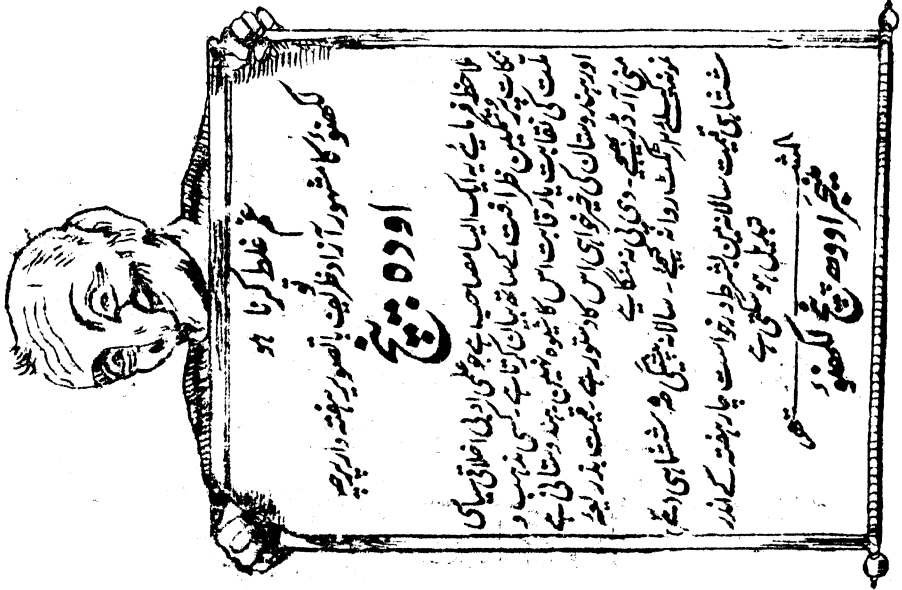 غم غلط کرنا ہو
تو
لکھنؤ کا مشہور آزاد ظریف باتصویر ہفتہ وار پرچہ
اودھ پنچ
ملاحظہ فرمائیے یہ ایک ایسا مصاحب ہے جو علمی ادبی اخلاقی سیاسی
نکات پر نمکین ظرافت کے ساتھ بیان کرتا ہے۔ کسی مذہب و
ملت کی نقابت یا رقابت اس کا شیوہ نہین ہندوستانی ہے
اور ہندوستان کی خیر خواہی اس کا دستور ہے۔ قیمت بذریعہ
منی آرڈر بھیجیے۔ وی پی نہ منگایے
نمونہ کیلئے ٹکٹ روانہ کیجیے۔ سالانہ پیشگی ششماہی
ششماہی قیمت سالانہ مین بشرط درخواست چار ہفتہ کے اندر
تبدیل ہو سکتی ہے
المشتہر
منیجر اودھ پنچ لکھنؤ